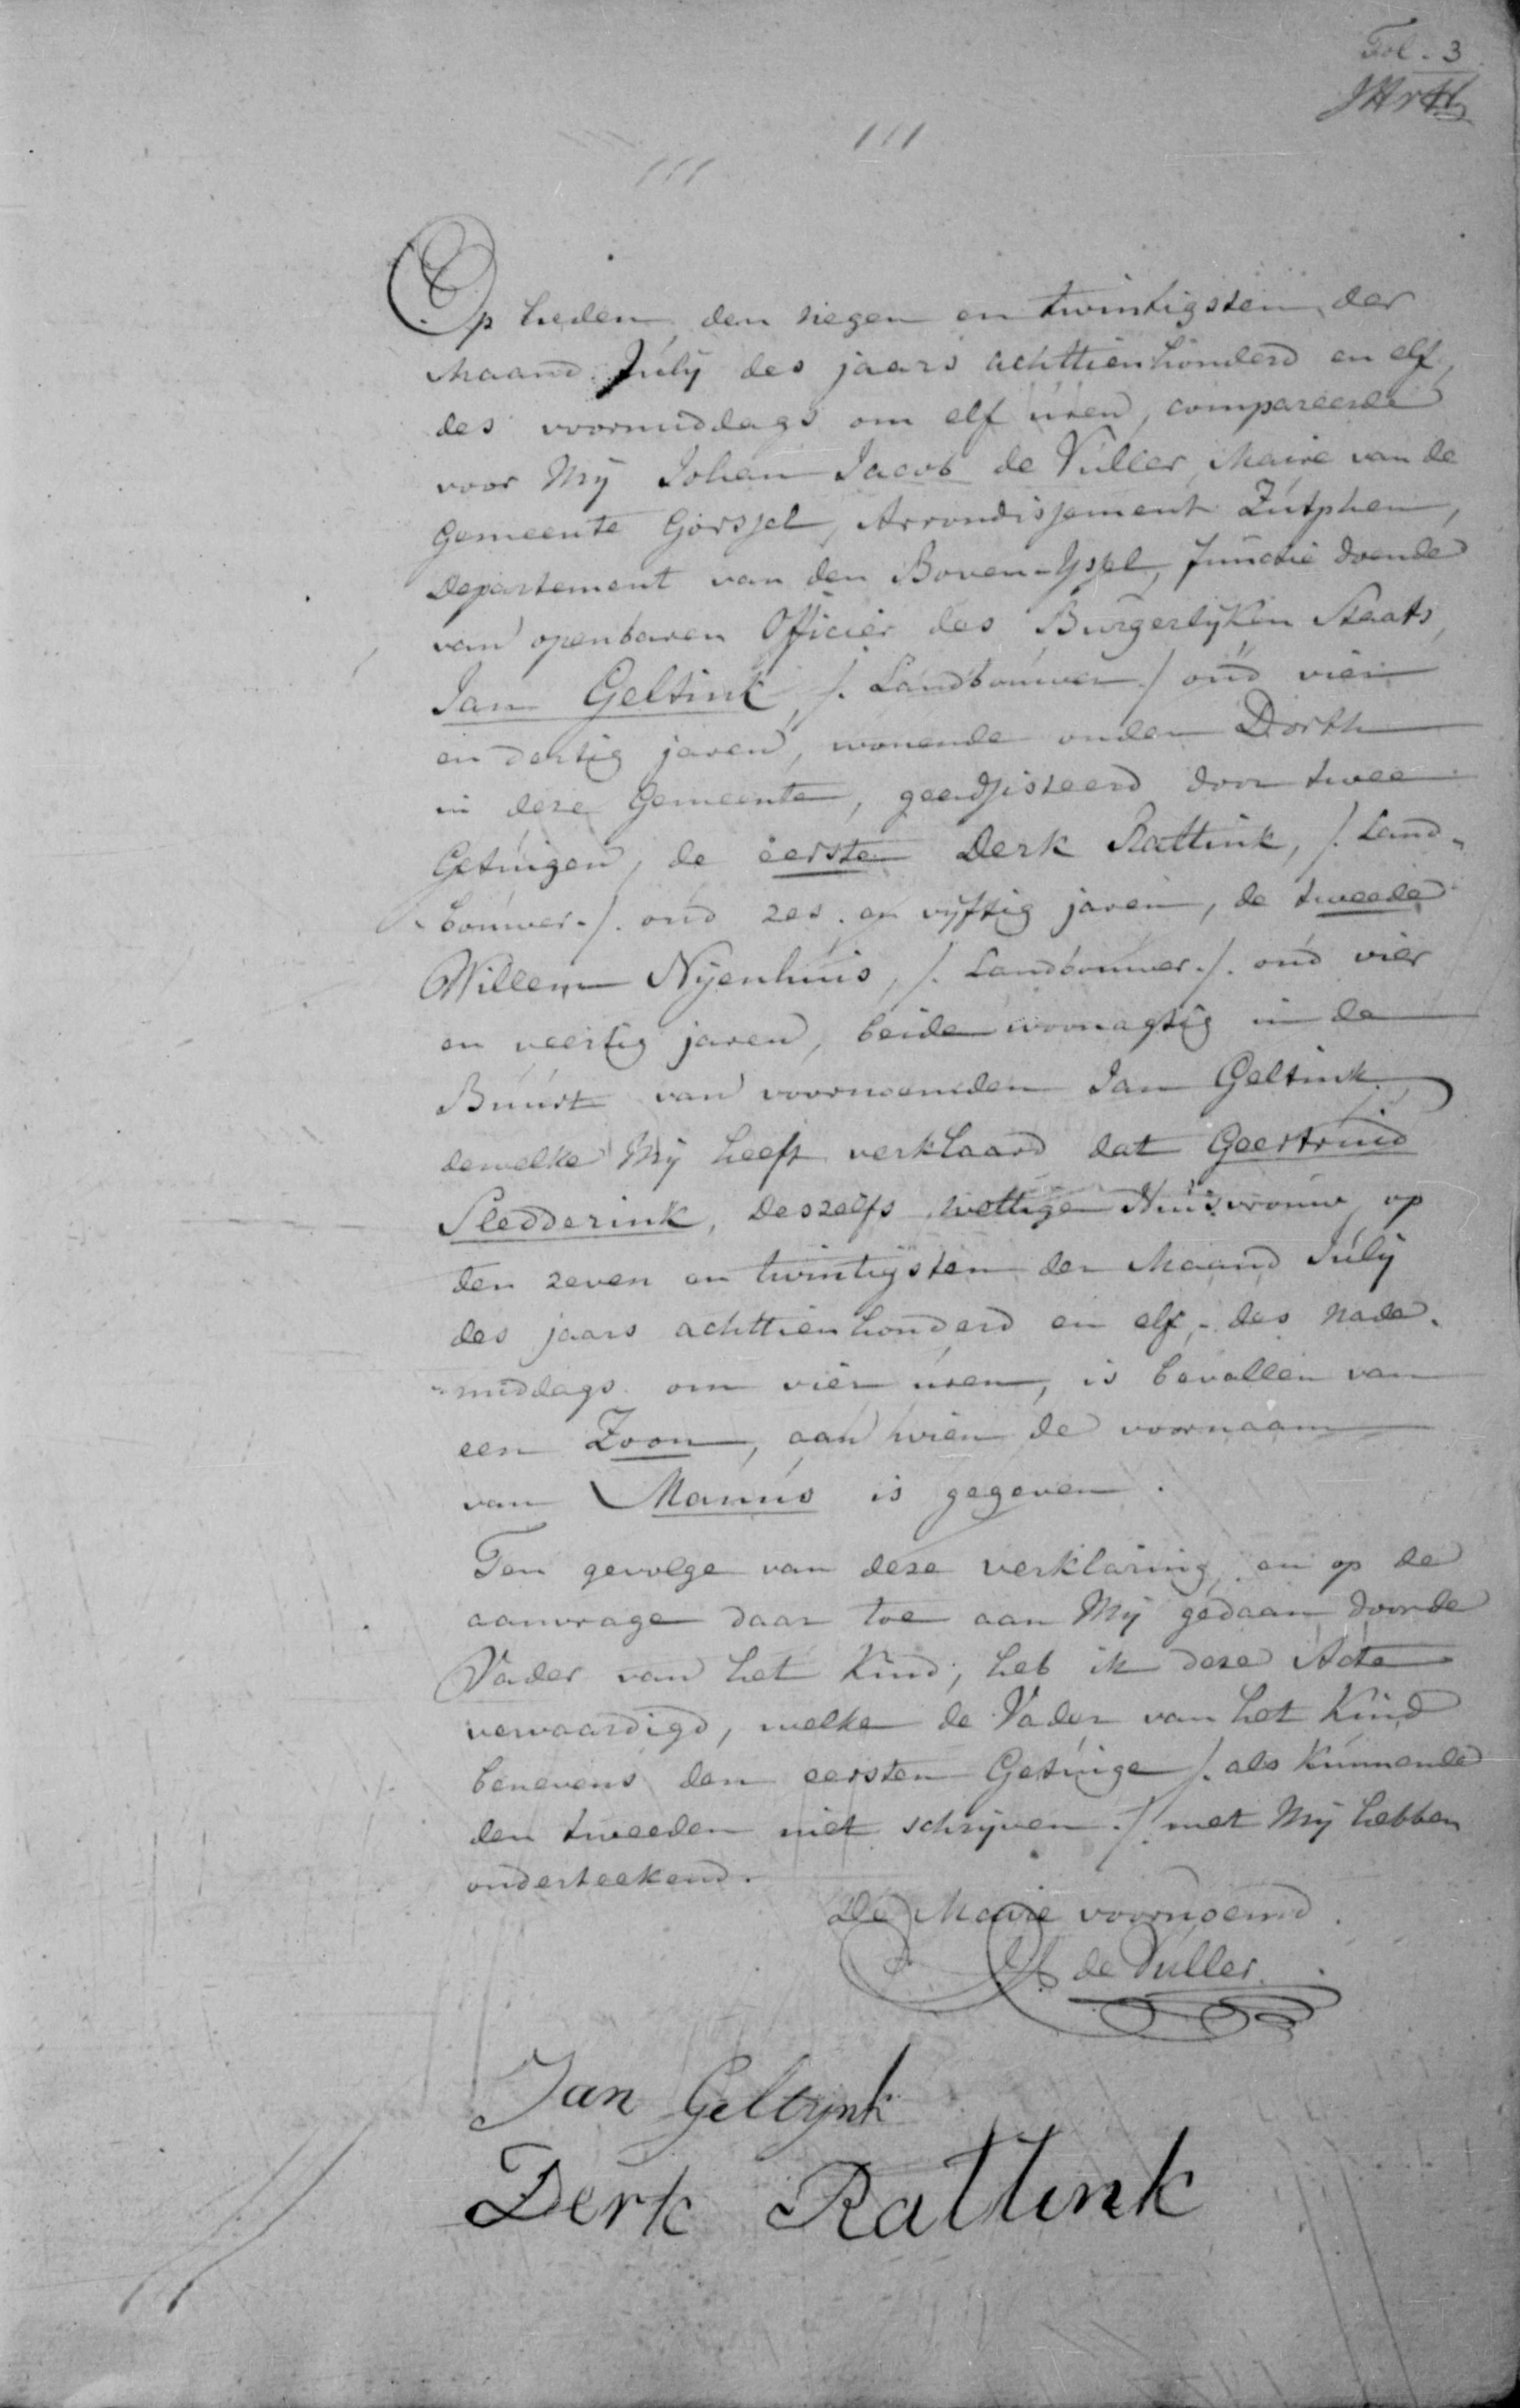 Fol. 3
Op heden den negen en twintigsten der
Maand July des jaars achttienhonderd en elf,
des voormiddags om elf uren, compareerde
voor Mij Johan Jacob de Vuller, Maire van de
Gemeente Gorssel, Arrondissement Zutphen,
Departement van den Boven-Yssel, functie doende
van openbaren Officier des Burgerlijken Staats,
Jan Geltink, /. Landbouwer ./ oud vier
en dertig jaren, wonende onder Dorth
in deze Gemeente, geadsisteerd door twee
Getuigen, de eerste Derk Rattink, /. Land-
bouwer ./. oud zes en vyftig jaren, de tweede
Willem Nijenhuis, /. Landbouwer ./. oud vier
en veertig jaren, beide woonagtig in de
Buurt van voornoemden Jan Geltink,
dewelke Mij heeft verklaard dat Geertruid
Sledderink, deszelfs wettige Huisvrouw op
den zeven en twintigsten der Maand July
des jaars achttienhonderd en elf, des nade-
middags om vier uren, is bevallen van
een Zoon, aan wien de voornaam
van Manus is gegeven.
Ten gevolge van deze verklaring, en op de
aanvrage daar toe aan Mij gedaan door de
Vader van het Kind, heb ik deze Acte
vervaardigd, welke de Vader van het Kind
benevens den eersten Getuige /. als kunnende
den tweeden niet schrijven ./. met Mij hebben
onderteekend.
De Maire voornoemd.
de Vuller
Jan Geltynk
Derk Rattink